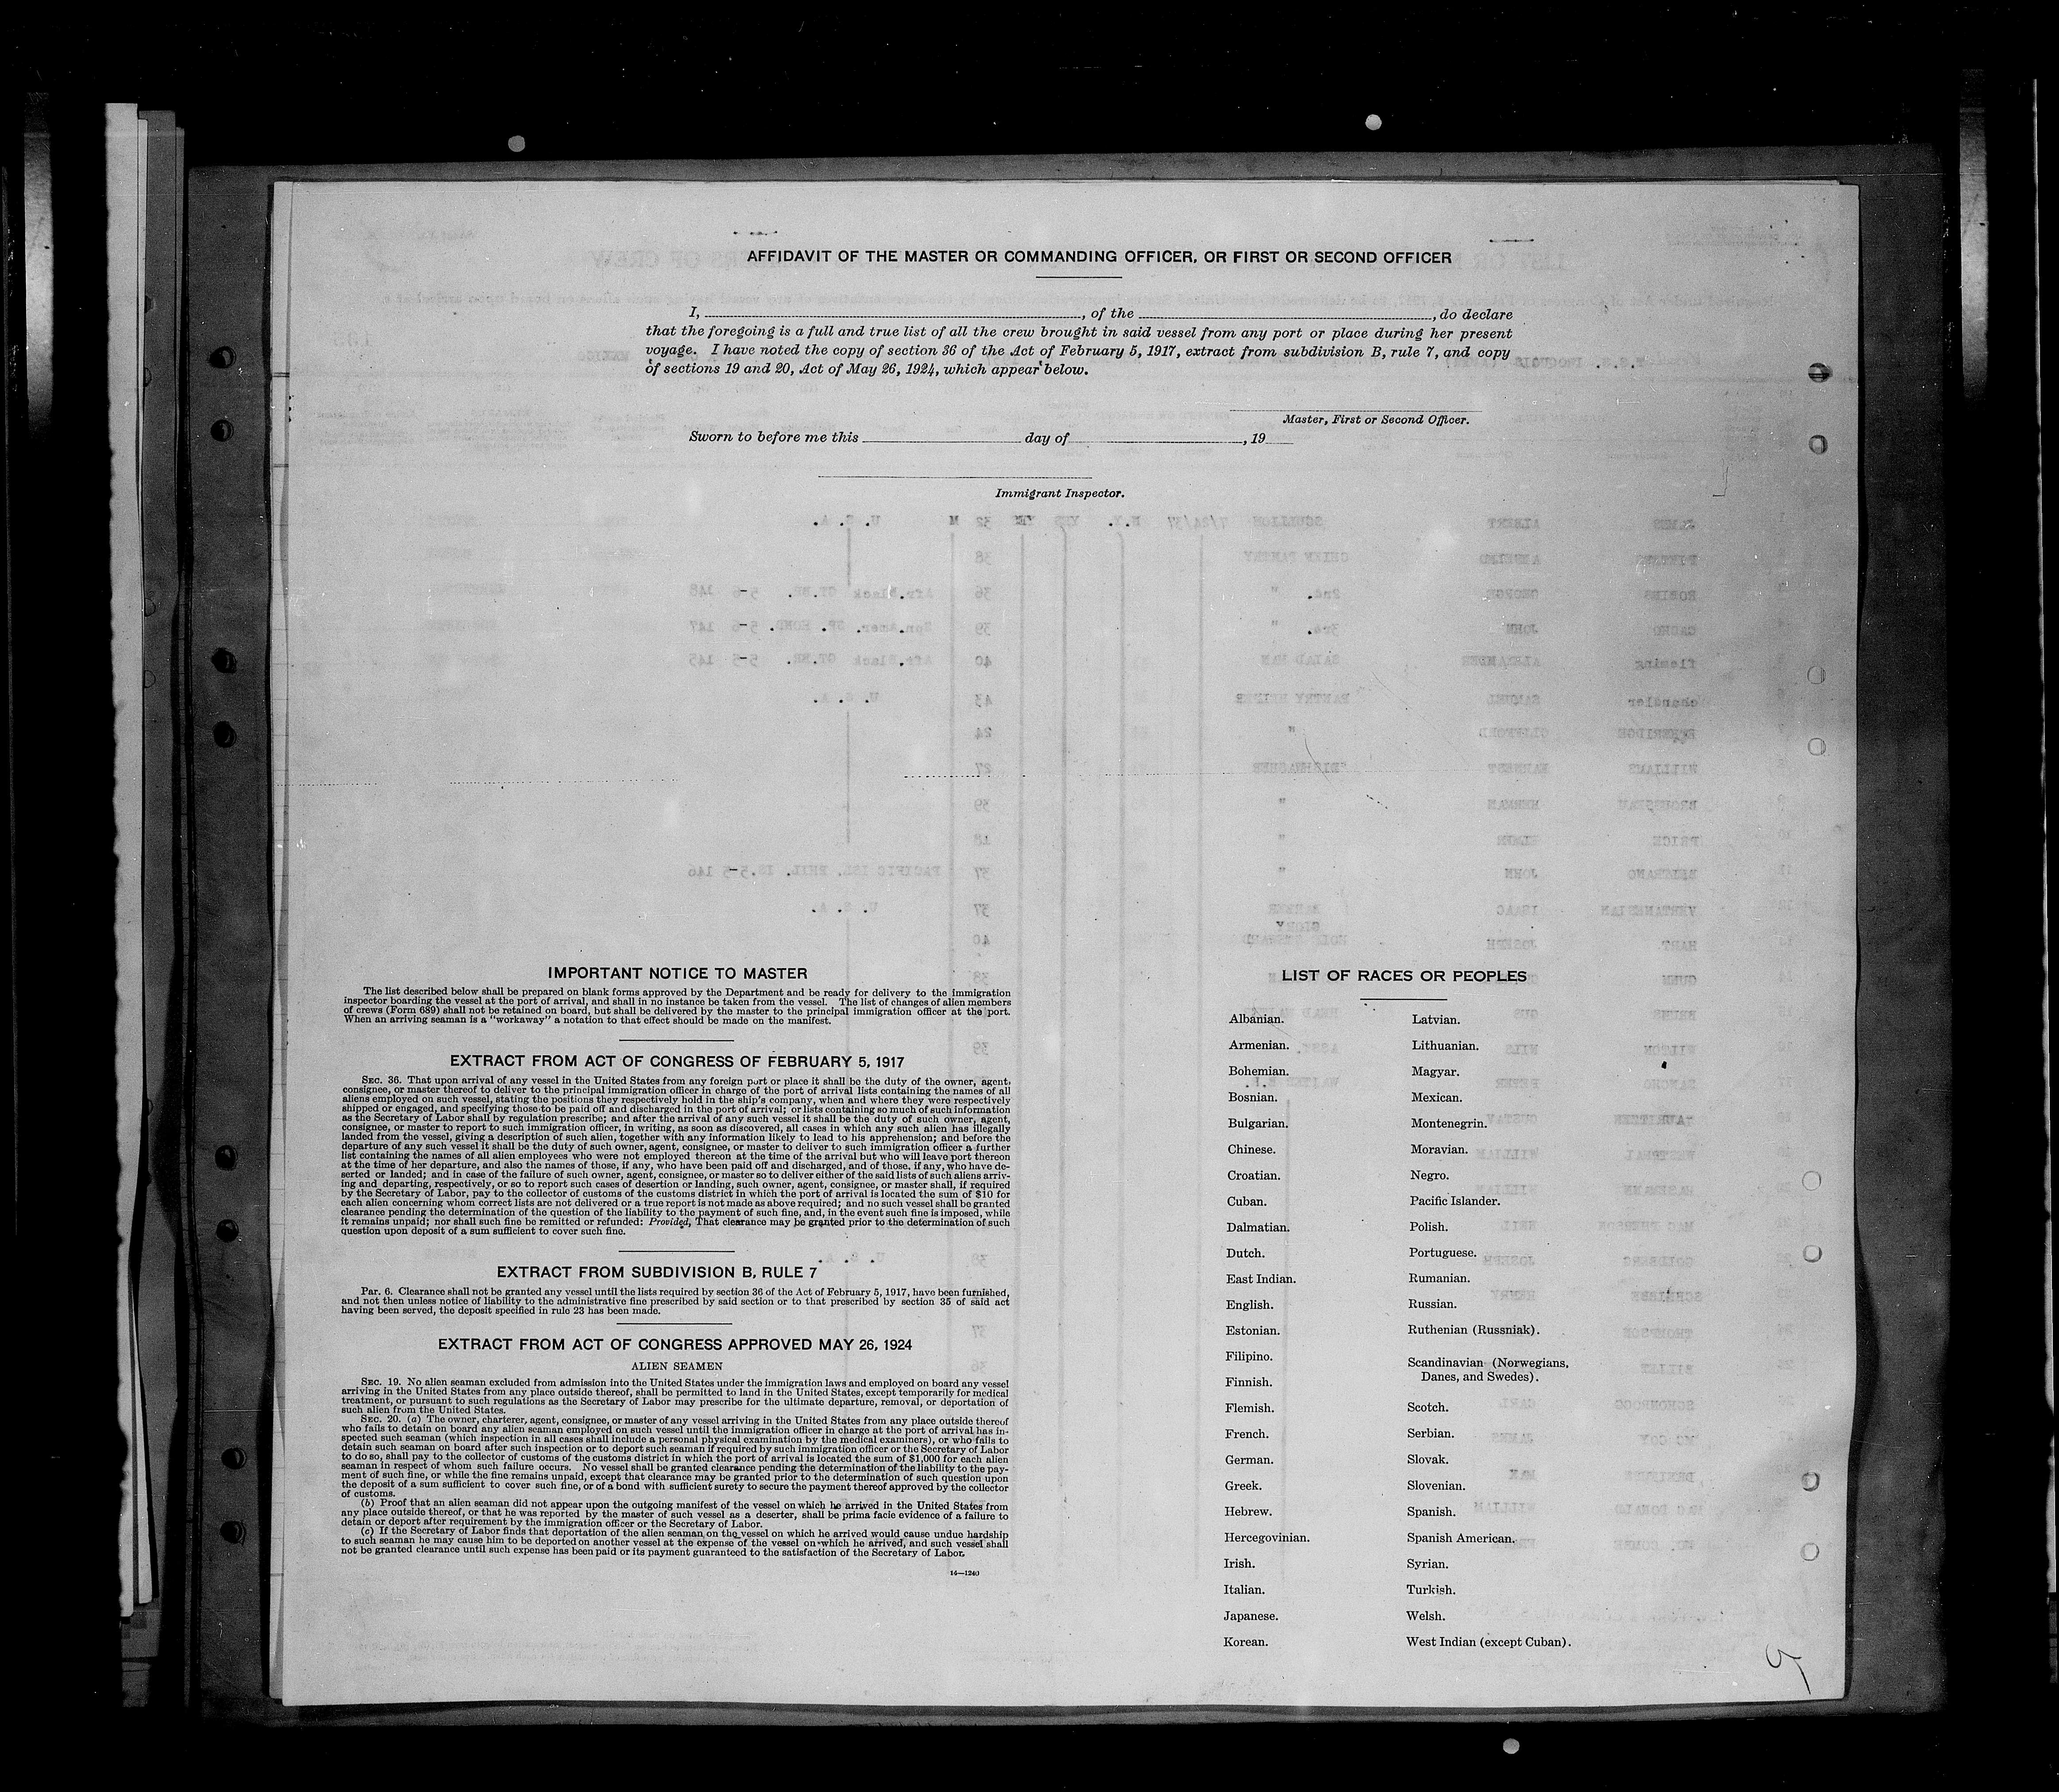 AFFIDAVIT OF THE MASTER OR COMMANDING OFFICER, OR FIRST OR SECOND OFFICER
I, , of the , do declare
that the foregoing is a full and true list of all the crew brought in said vessel from any port or place during her present
voyage. I have noted the copy of section 36 of the Act of February 5, 1917, extract from subdivision B, rule 7, and copy
of sections 19 and 20, Act of May 26, 1924, which appear below.
Master, First or Second Officer.
Sworn to before me this day of , 19
Immigrant Inspector.
IMPORTANT NOTICE TO MASTER
The list described below shall be prepared on blank forms approved by the Department and be ready for delivery to the immigration
inspector boarding the vessel at the port of arrival, and shall in no instance be taken from the vessel. The list of changes of alien members
of crews (Form 689) shall not be retained on board, but shall be delivered by the master to the principal immigration officer at the port.
When an arriving seaman is a "workaway" a notation to that effect should be made on the manifest.
EXTRACT FROM ACT OF CONGRESS OF FEBRUARY 5, 1917
SEC. 36. That upon arrival of any vessel in the United States from any foreign port or place it shall be the duty of the owner, agent,
consignee, or master thereof to deliver to the principal immigration officer in charge of the port of arrival lists containing the names of all
aliens employed on such vessel, stating the positions they respectively hold in the ship's company, when and where they were respectively
shipped or engaged, and specifying those to be paid off and discharged in the port of arrival; or lists containing so much of such information
as the Secretary of Labor shall by regulation prescribe; and after the arrival of any such vessel it shall be the duty of such owner, agent,
consignee, or master to report to such immigration officer, in writing, as soon as discovered, all cases in which any such alien has illegally
landed from the vessel, giving a description of such alien, together with any information likely to lead to his apprehension; and before the
departure of any such vessel it shall be the duty of such owner, agent, consignee, or master to deliver to such immigration officer a further
list containing the names of all alien employees who were not employed thereon at the time of the arrival but who will leave port thereon
at the time of her departure, and also the names of those, if any, who have been paid off and discharged, and of those, if any, who have de-
serted or landed; and in case of the failure of such owner, agent, consignee, or master so to deliver either of the said lists of such aliens arriv-
ing and departing, respectively, or so to report such cases of desertion or landing, such owner, agent, consignee, or master shall, if required
by the Secretary of Labor, pay to the collector of customs of the customs district in which the port of arrival is located the sum of $10 for
each alien concerning whom correct lists are not delivered or a true report is not made as above required; and no such vessel shall be granted
clearance pending the determination of the question of the liability to the payment of such fine, and, in the event such fine is imposed, while
it remains unpaid; nor shall such fine be remitted or refunded: Provided, That clearance may be granted prior to the determination of such
question upon deposit of a sum sufficient to cover such fine.
EXTRACT FROM SUBDIVISION B, RULE 7
PAR. 6. Clearance shall not be granted any vessel until the lists required by section 36 of the Act of February 5, 1917, have been furnished,
and not then unless notice of liability to the administrative fine prescribed by said section or to that prescribed by section 35 of said act
having been served, the deposit specified in rule 23 has been made.
EXTRACT FROM ACT OF CONGRESS APPROVED MAY 26, 1924
ALIEN SEAMEN
SEC. 19. No alien seaman excluded from admission into the United States under the immigration laws and employed on board any vessel
arriving in the United States from any place outside thereof, shall be permitted to land in the United States, except temporarily for medical
treatment, or pursuant to such regulations as the Secretary of Labor may prescribe for the ultimate departure, removal, or deportation of
such alien from the United States.
SEC. 20. (a) The owner, charterer, agent, consignee, or master of any vessel arriving in the United States from any place outside thereof
who fails to detain on board any alien seaman employed on such vessel until the immigration officer in charge at the port of arrival has in-
spected such seaman (which inspection in all cases shall include a personal physical examination by the medical examiners), or who fails to
detain such seaman on board after such inspection or to deport such seaman if required by such immigration officer or the Secretary of Labor
to do so, shall pay to the collector of customs of the customs district in which the port of arrival is located the sum of $1,000 for each alien
seaman in respect of whom such failure occurs. No vessel shall be granted clearance pending the determination of the liability to the pay-
ment of such fine, or while the fine remains unpaid, except that clearance may be granted prior to the determination of such question upon
the deposit of a sum sufficient to cover such fine, or of a bond with sufficient surety to secure the payment thereof approved by the collector
of customs.
(b) Proof that an alien seaman did not appear upon the outgoing manifest of the vessel on which he arrived in the United States from
any place outside thereof, or that he was reported by the master of such vessel as a deserter, shall be prima facie evidence of a failure to
detain or deport after requirement by the immigration officer or the Secretary of Labor.
(c) If the Secretary of Labor finds that deportation of the alien seaman on the vessel on which he arrived would cause undue hardship
to such seaman he may cause him to be deported on another vessel at the expense of the vessel on which he arrived, and such vessel shall
not be granted clearance until such expense has been paid or its payment guaranteed to the satisfaction of the Secretary of Labor.
14—1240
LIST OF RACES OR PEOPLES
Albanian.
Armenian.
Bohemian.
Bosnian.
Bulgarian.
Chinese.
Croatian.
Cuban.
Dalmatian.
Dutch.
East Indian.
English.
Estonian.
Filipino.
Finnish.
Flemish.
French.
German.
Greek.
Hebrew.
Hercegovinian.
Irish.
Italian.
Japanese.
Korean.
Latvian.
Lithuanian.
Magyar.
Mexican.
Montenegrin.
Moravian.
Negro.
Pacific Islander.
Polish.
Portuguese.
Rumanian.
Russian.
Ruthenian (Russniak).
Scandinavian (Norwegians,
Danes, and Swedes).
Scotch.
Serbian.
Slovak.
Slovenian.
Spanish.
Spanish American.
Syrian.
Turkish.
Welsh.
West Indian (except Cuban).